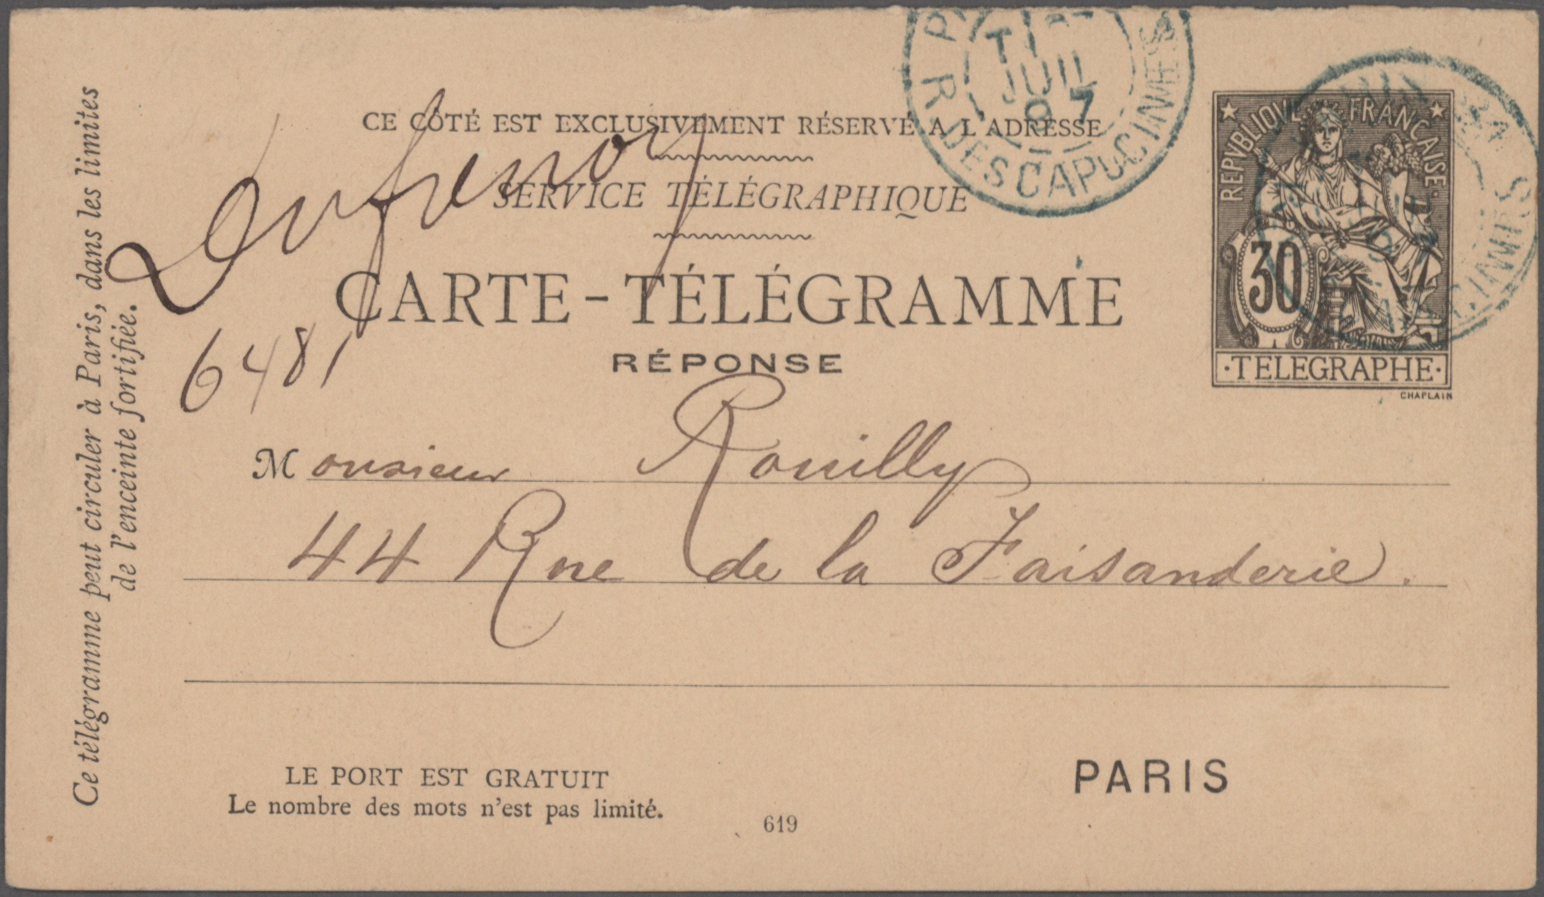 Ce télégramme peut circuler à Paris, dans les limites
de l'enceinte fortifiée.
CE CÔTÉ EST EXCLUSIVEMENT RÉSERVÉ A L'ADRESSE
SERVICE TÉLÉGRAPHIQUE
CARTE-TÉLÉGRAMME
RÉPONSE
Dufrenoy
6481
JUIL
97
R. DES CAPUCINES
REPUBLIQUE FRANÇAISE
30
·TELEGRAPHE·
CHAPLAIN
Monsieur Rouilly
44 Rue de la Faisanderie.
LE PORT EST GRATUIT
Le nombre des mots n'est pas limité.
619
PARIS